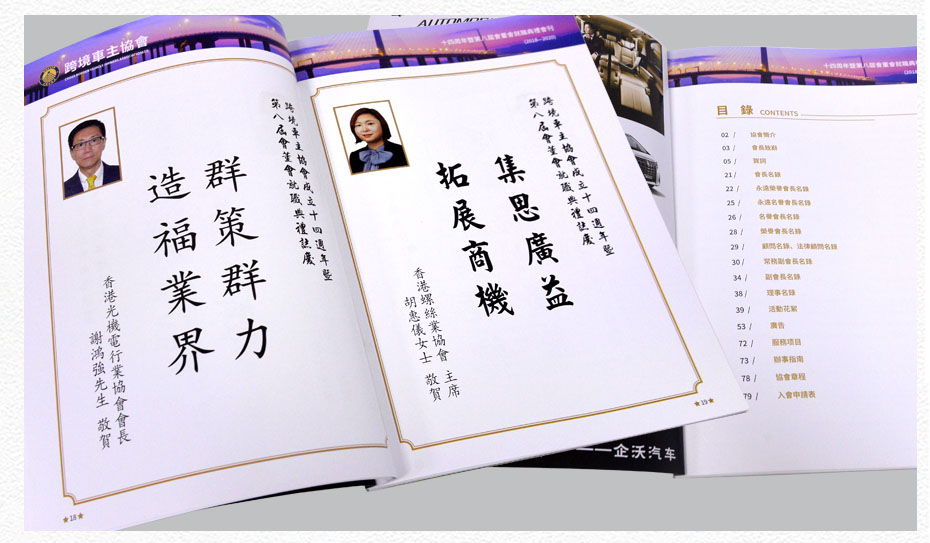 跨境車主協會
跨境車主協會成立十四週年暨
第八屆會董會就職典禮誌慶
群策群力
造福業界
香港光機電行業協會會長
謝鴻強先生 敬賀
18
十四周年暨第八屆會董會就職典禮會刊
(2018-2020)
跨境車主協會成立十四週年暨
第八屆會董會就職典禮誌慶
集思廣益
拓展商機
香港螺絲業協會 主席
胡惠儀女士 敬賀
19
企沃汽车
十四周年暨第八屆會董會就職典
目錄 CONTENTS
02 / 協會簡介
03 / 會長致辭
05 / 賀詞
21 / 會長名錄
22 / 永遠榮譽會長名錄
25 / 永遠名譽會長名錄
26 / 名譽會長名錄
28 / 榮譽會長名錄
29 / 顧問名錄、法律顧問名錄
30 / 常務副會長名錄
34 / 副會長名錄
38 / 理事名錄
39 / 活動花絮
53 / 廣告
72 / 服務項目
73 / 辦事指南
78 / 協會章程
79 / 入會申請表